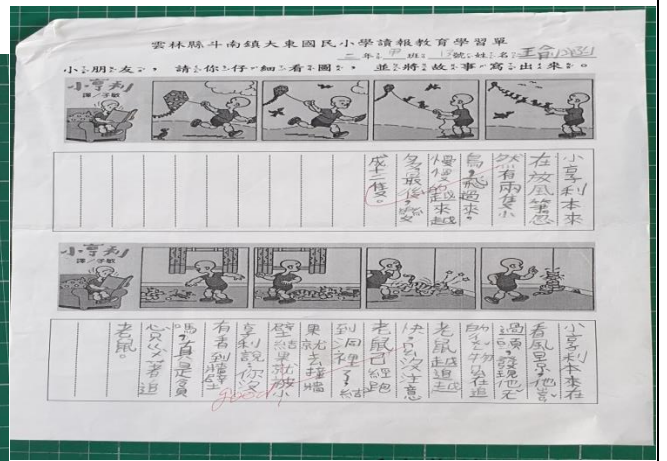 雲林縣斗南鎮大東國民小學讀報教育學習單
二年甲班 號姓名
小朋友,請你仔細看圖,並將故事寫出來。
小亨利
譯/子敏
小亨利本來
在放風箏忽
然有兩隻小
鳥,飛過來。
慢慢的越來越
多最後,變
成十二隻。
小亨利
譯/子敏
小亨利本來在
看風景,他當
過頭,發現他
的 物 在追
老鼠越追越
快, 沒注意
老鼠已經跑
到洞裡了,結
果就去撞牆
壁結果就被小
亨利說:你沒
有看到牆壁
嗎,真是貪
心只 著追
老鼠。
good